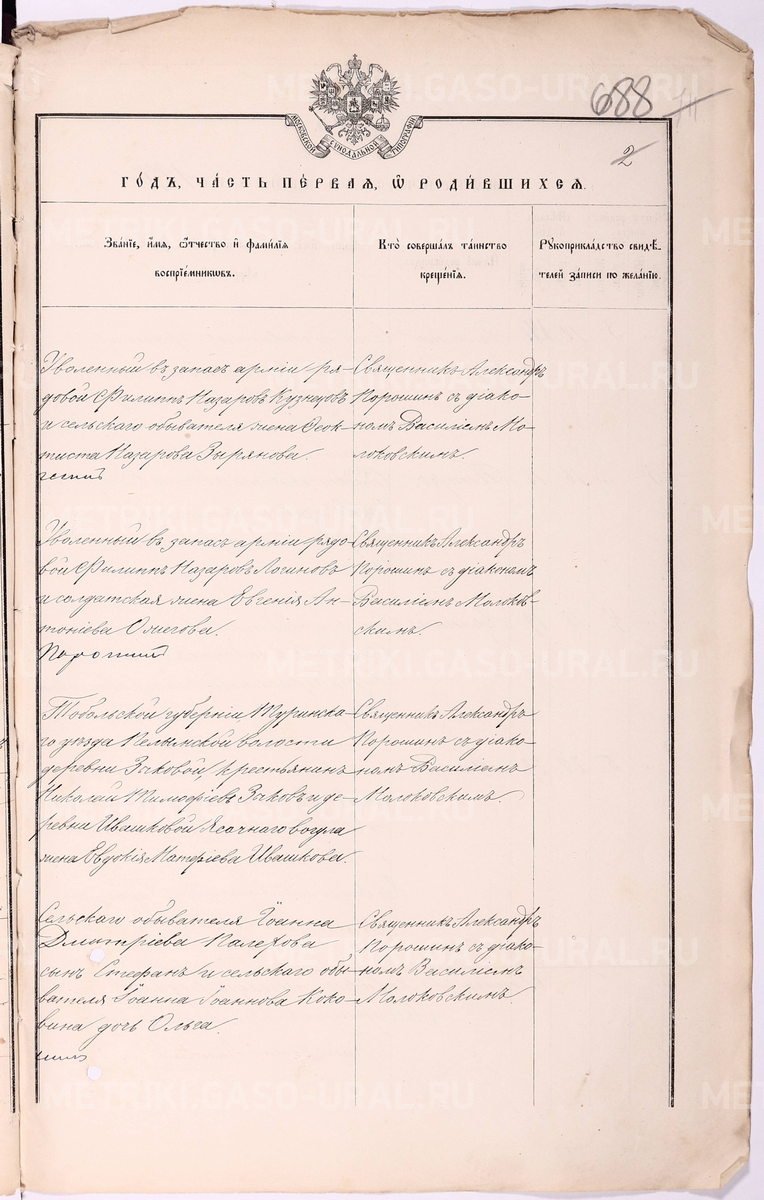 688
2
МОСКОВСКОЙ СѴНОДАЛЬНОЙ ТИПОГРАФІИ
ГО́ДЪ, ЧА́СТЬ ПЕ́РВАЯ, Ѡ РОДИ́ВШИХСЯ.
Зва́нїе, и́мя, ѻ҆́тчество и҆ фами́лїя
воспрїе́мникѡвъ.
Кто̀ соверша́лъ та́инство
креще́нїя.
Рꙋкоприкла́дство свидѣ́-
телей за́писи по жела́нїю.
Уволенный въ запасъ арміи ря-
довой Филиппъ Назаровъ Кузнецовъ
и сельскаго обывателя жена Феок-
тиста Назарова Зырянова.
Священникъ Александръ
Порошинъ съ діако-
номъ Василіемъ Мо-
локовскимъ.
Уволенный въ запасъ арміи рядо-
вой Филиппъ Назаровъ Логиновъ
и солдатская жена Евгенія Ан-
тоніева Ожегова.
Священникъ Александръ
Порошинъ съ діакономъ
Василіемъ Молоков-
скимъ.
Тобольской губерніи Туринска-
го уѣзда Пелымской волости
деревни Заковой, крестьянинъ
Николай Тимофіевъ Заковъ и де-
ревни Ивашковой Ясачнаго вогула
жена Евдокія Матфіева Ивашкова.
Священникъ Александръ
Порошинъ съ діако-
номъ Василіемъ
Молоковскимъ.
Сельскаго обывателя Іоанна
Дмитріева Палехова
сынъ Стефанъ и сельскаго обы-
вателя Іоанна Іоаннова Коко-
вина дочь Ольга.
Священникъ Александръ
Порошинъ съ діако-
номъ Василіемъ
Молоковскимъ.
METRIKI.GASO-URAL.RU